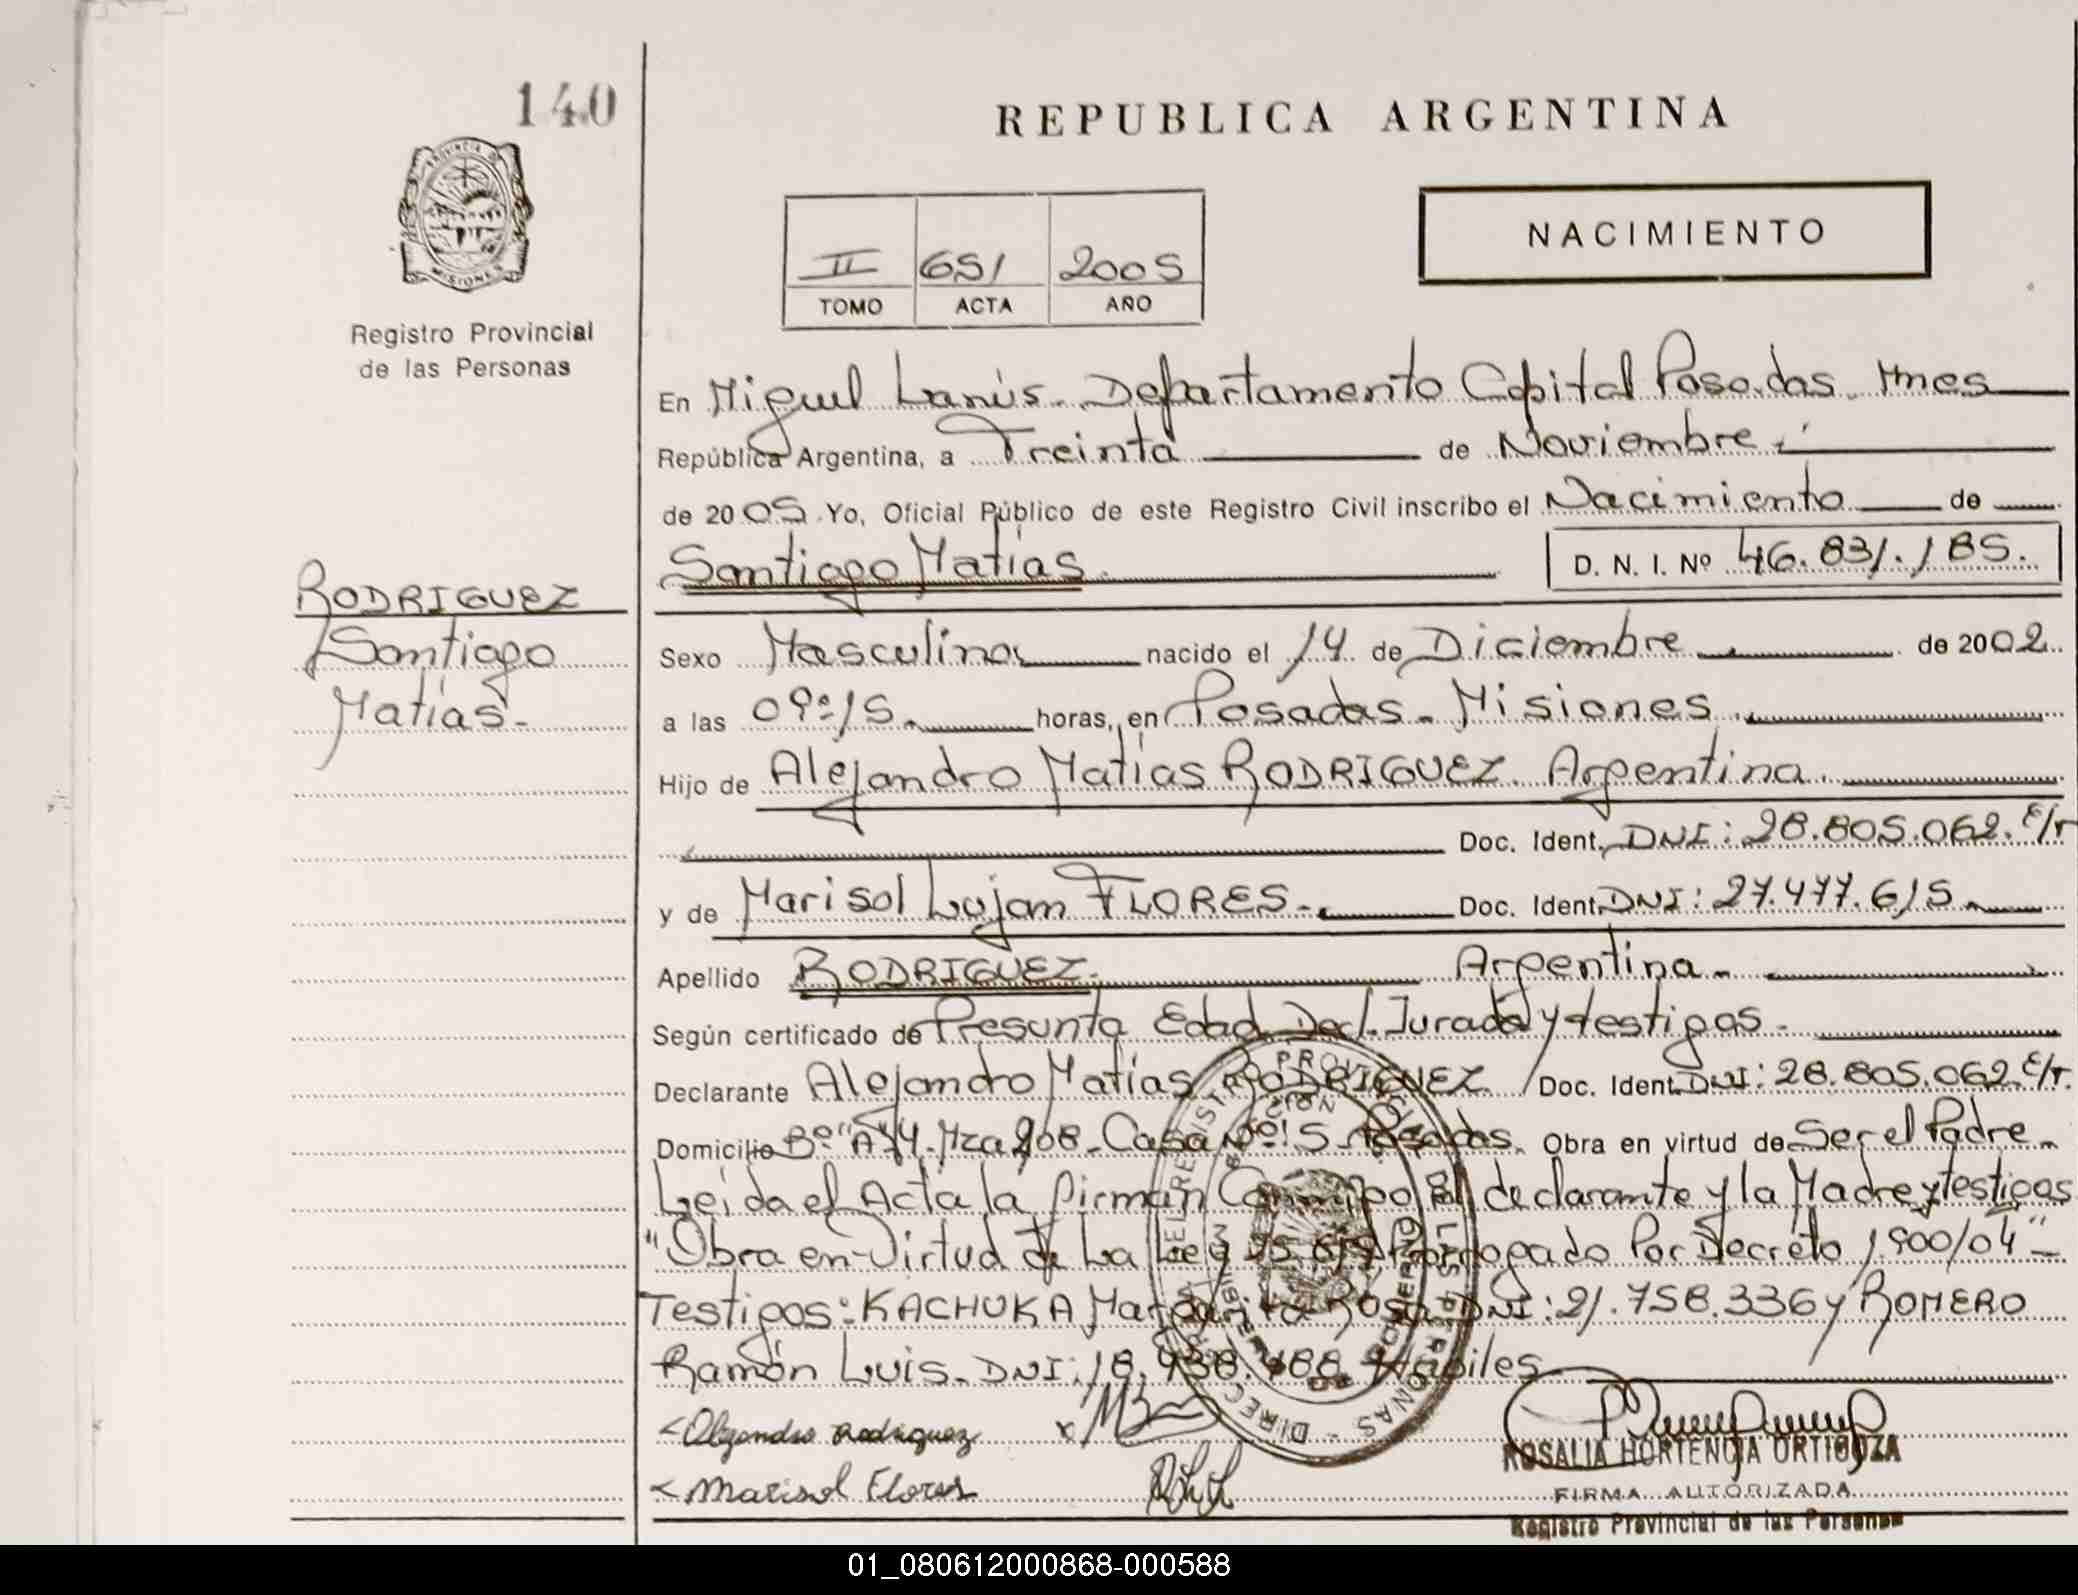 140
REPUBLICA ARGENTINA
PROVINCIA DE
MISIONES
Registro Provincial
de las Personas
NACIMIENTO
II 651 2005
TOMO ACTA AÑO
En Miguel Lanús - Departamento Capital Posadas - Mnes
República Argentina, a Treinta de Noviembre
de 2005 Yo, Oficial Público de este Registro Civil inscribo el Nacimiento de
Santiago Matías. D. N. I. Nº 46.831.185.
RODRIGUEZ
Santiago
Matías -
Sexo Masculino nacido el 14 de Diciembre de 2002
a las 09:15 horas, en Posadas - Misiones
Hijo de Alejandro Matías RODRIGUEZ. Argentina
Doc. Ident. DNI: 28.805.062. E/T
y de Marisol Lujan FLORES - Doc. Ident. DNI: 27.477.615
Apellido RODRIGUEZ. Argentina -
Según certificado de Presunta Edad Decl. Jurada y testigos -
Declarante Alejandro Matías RODRIGUEZ Doc. Ident. DNI: 28.805.062 E/T.
Domicilio Bº "A" 4 - Mza 208 - Casa Nº 15 - Posadas. Obra en virtud de Ser el Padre -
Leída el Acta la firman Conmigo el declarante y la Madre y testigos
"Obra en Virtud de La Ley Prorrogado Por Decreto 1.900/04" -
Testigos: KACHUKA Margarita Rosa DNI: 21.758.336 y ROMERO
Ramón Luis - DNI: 18.938.488 Habiles
Alejandro Rodriguez
Marisol Flores
ROSALIA HORTENCIA ORTIGOZA
FIRMA AUTORIZADA
Registro Provincial de las Personas
01_080612000868-000588